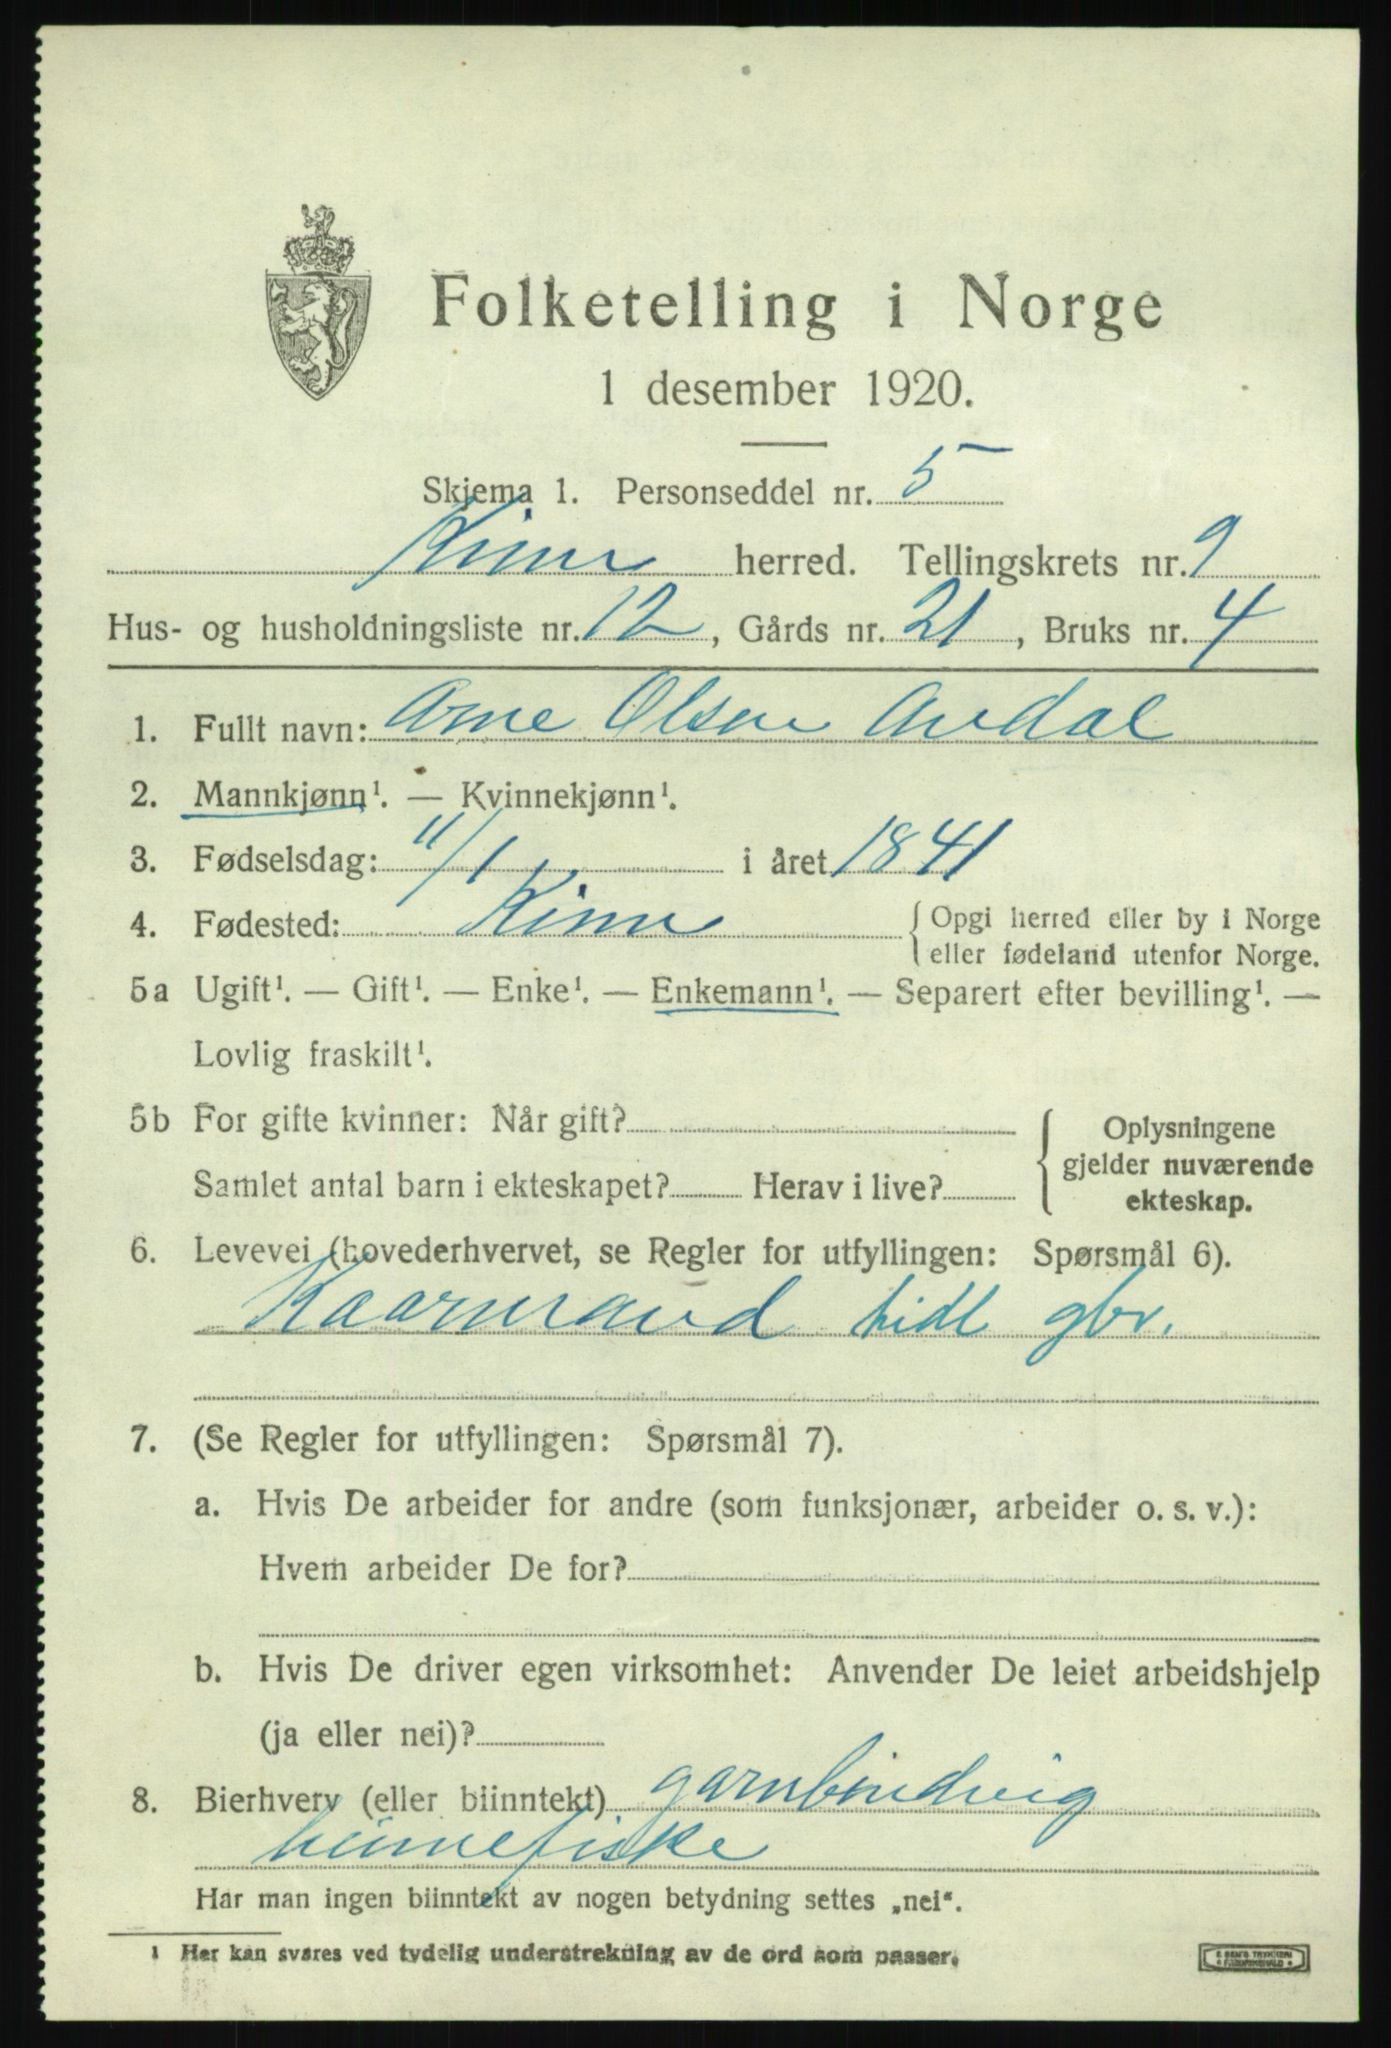 Folketelling i Norge
1 desember 1920.
Skjema 1. Personseddel nr. 5
Kinn herred. Tellingskrets nr. 9
Hus- og husholdningsliste nr. 12, Gårds nr. 21, Bruks nr. 4
1. Fullt navn: Arne Olsen Avdal
2. Mannkjønn¹. — Kvinnekjønn¹.
3. Fødselsdag: 11/1 i året 1841
4. Fødested: Kinn { Opgi herred eller by i Norge
eller fødeland utenfor Norge.
5a Ugift¹. — Gift¹. — Enke¹. — Enkemann¹. — Separert efter bevilling¹. —
Lovlig fraskilt¹.
5b For gifte kvinner: Når gift?
Samlet antal barn i ekteskapet? Herav i live?
{ Oplysningene
gjelder nuværende
ekteskap.
6. Levevei (hovederhvervet, se Regler for utfyllingen: Spørsmål 6).
Kaarmand tidl gbr.
7. (Se Regler for utfyllingen: Spørsmål 7).
a. Hvis De arbeider for andre (som funksjonær, arbeider o. s. v.):
Hvem arbeider De for?
b. Hvis De driver egen virksomhet: Anvender De leiet arbeidshjelp
(ja eller nei)?
8. Bierhverv (eller biinntekt) garnbindvig
himefiske
Har man ingen biinntekt av nogen betydning settes „nei“.
1 Her kan svares ved tydelig understrekning av de ord som passer.